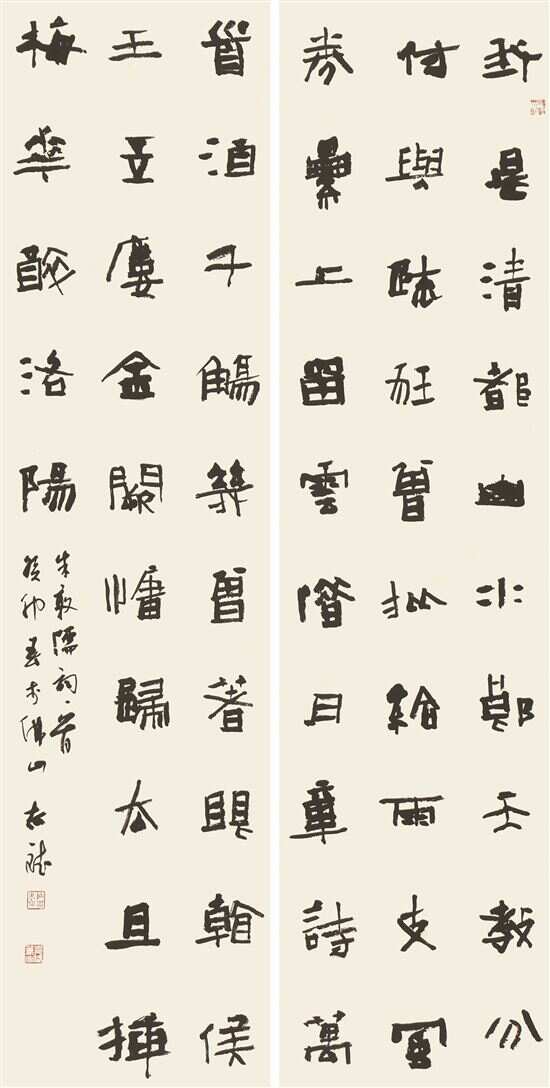 我是清都山水郎天教分
付與疎狂曾批給雨支風
券纍上留雲借月章詩萬
首酒千觴幾曾著眼看侯
王玉樓金闕慵歸去且插
梅華醉洛陽
朱敦儒詞一首
癸卯春於佛山